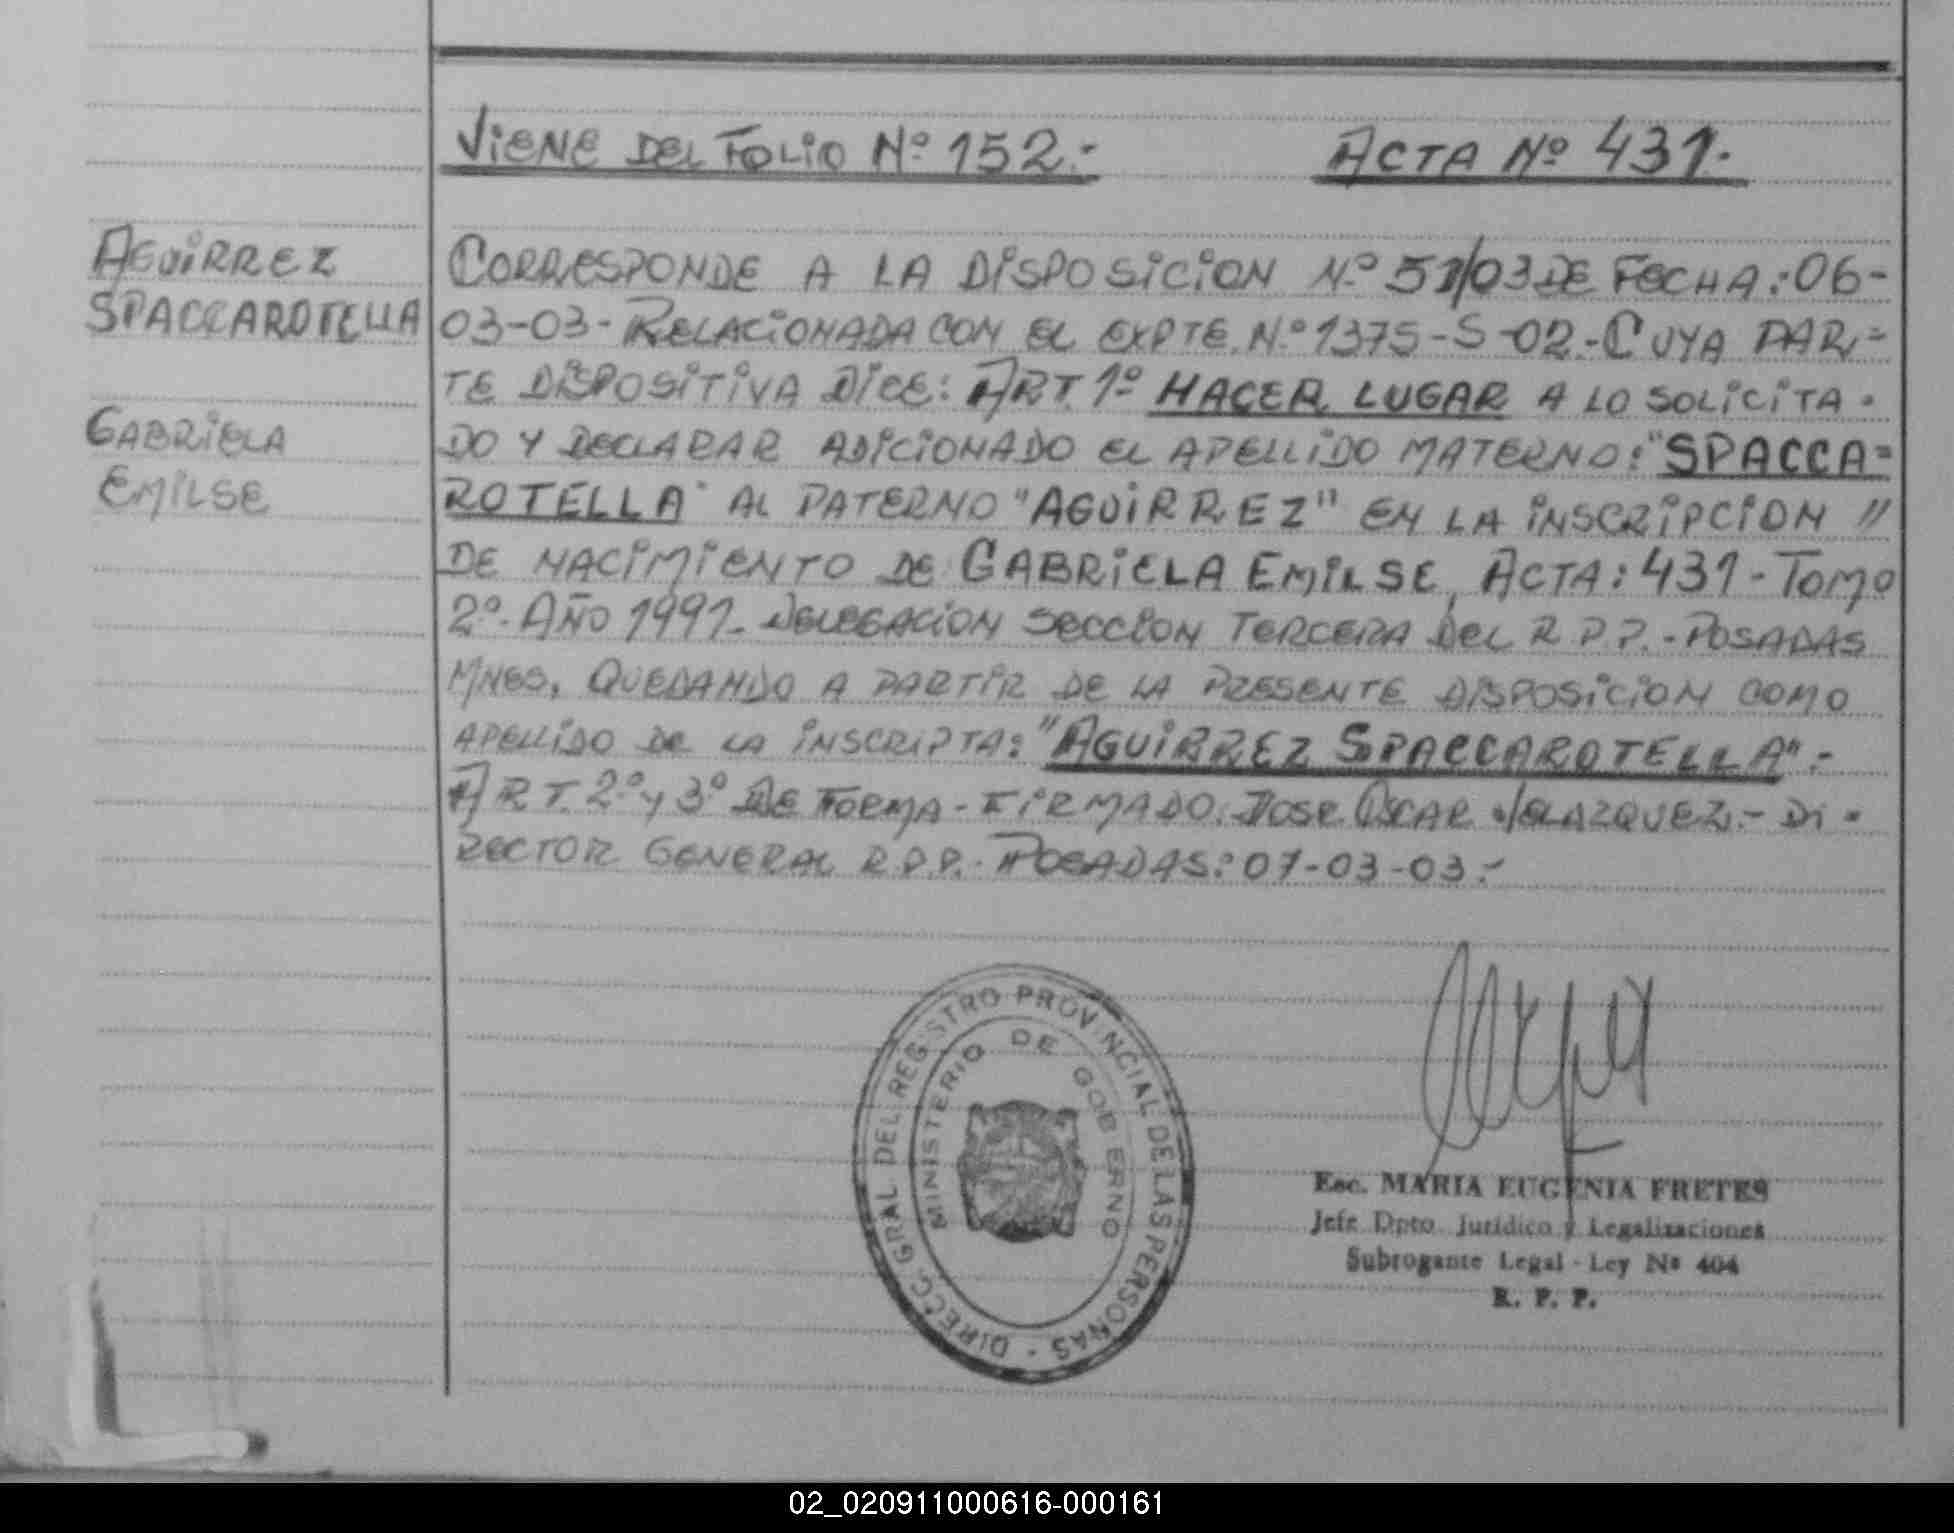 VIENE DEL FOLIO Nº 152.- ACTA Nº 431.-
AGUIRREZ
SPACCAROTELLA
GABRIELA
EMILSE
CORRESPONDE A LA DISPOSICION Nº 51/03 DE FECHA: 06-
03-03- RELACIONADA CON EL EXPTE. Nº 1375-S-02.- CUYA PAR=
TE DISPOSITIVA DICE: ART. 1º HACER LUGAR A LO SOLICITA-
DO Y DECLARAR ADICIONADO EL APELLIDO MATERNO: "SPACCA=
ROTELLA" AL PATERNO "AGUIRREZ" EN LA INSCRIPCION //
DE NACIMIENTO DE GABRIELA EMILSE, ACTA: 431- TOMO
2º- AÑO 1991- DELEGACION SECCION TERCERA DEL R.P.P.- POSADAS
MNES, QUEDANDO A PARTIR DE LA PRESENTE DISPOSICION COMO
APELLIDO DE LA INSCRIPTA: "AGUIRREZ SPACCAROTELLA".-
ART. 2º y 3º DE FORMA- FIRMADO: JOSE OSCAR VELAZQUEZ.- DI-
RECTOR GENERAL R.P.P.- POSADAS: 07-03-03.-
DIRECC. GRAL DEL REGISTRO PROVINCIAL DE LAS PERSONAS -
MINISTERIO DE GOBIERNO
Esc. MARIA EUGENIA FRETES
Jefe Dpto. Jurídico y Legalizaciones
Subrogante Legal - Ley Nº 404
R. P. P.
02_020911000616-000161